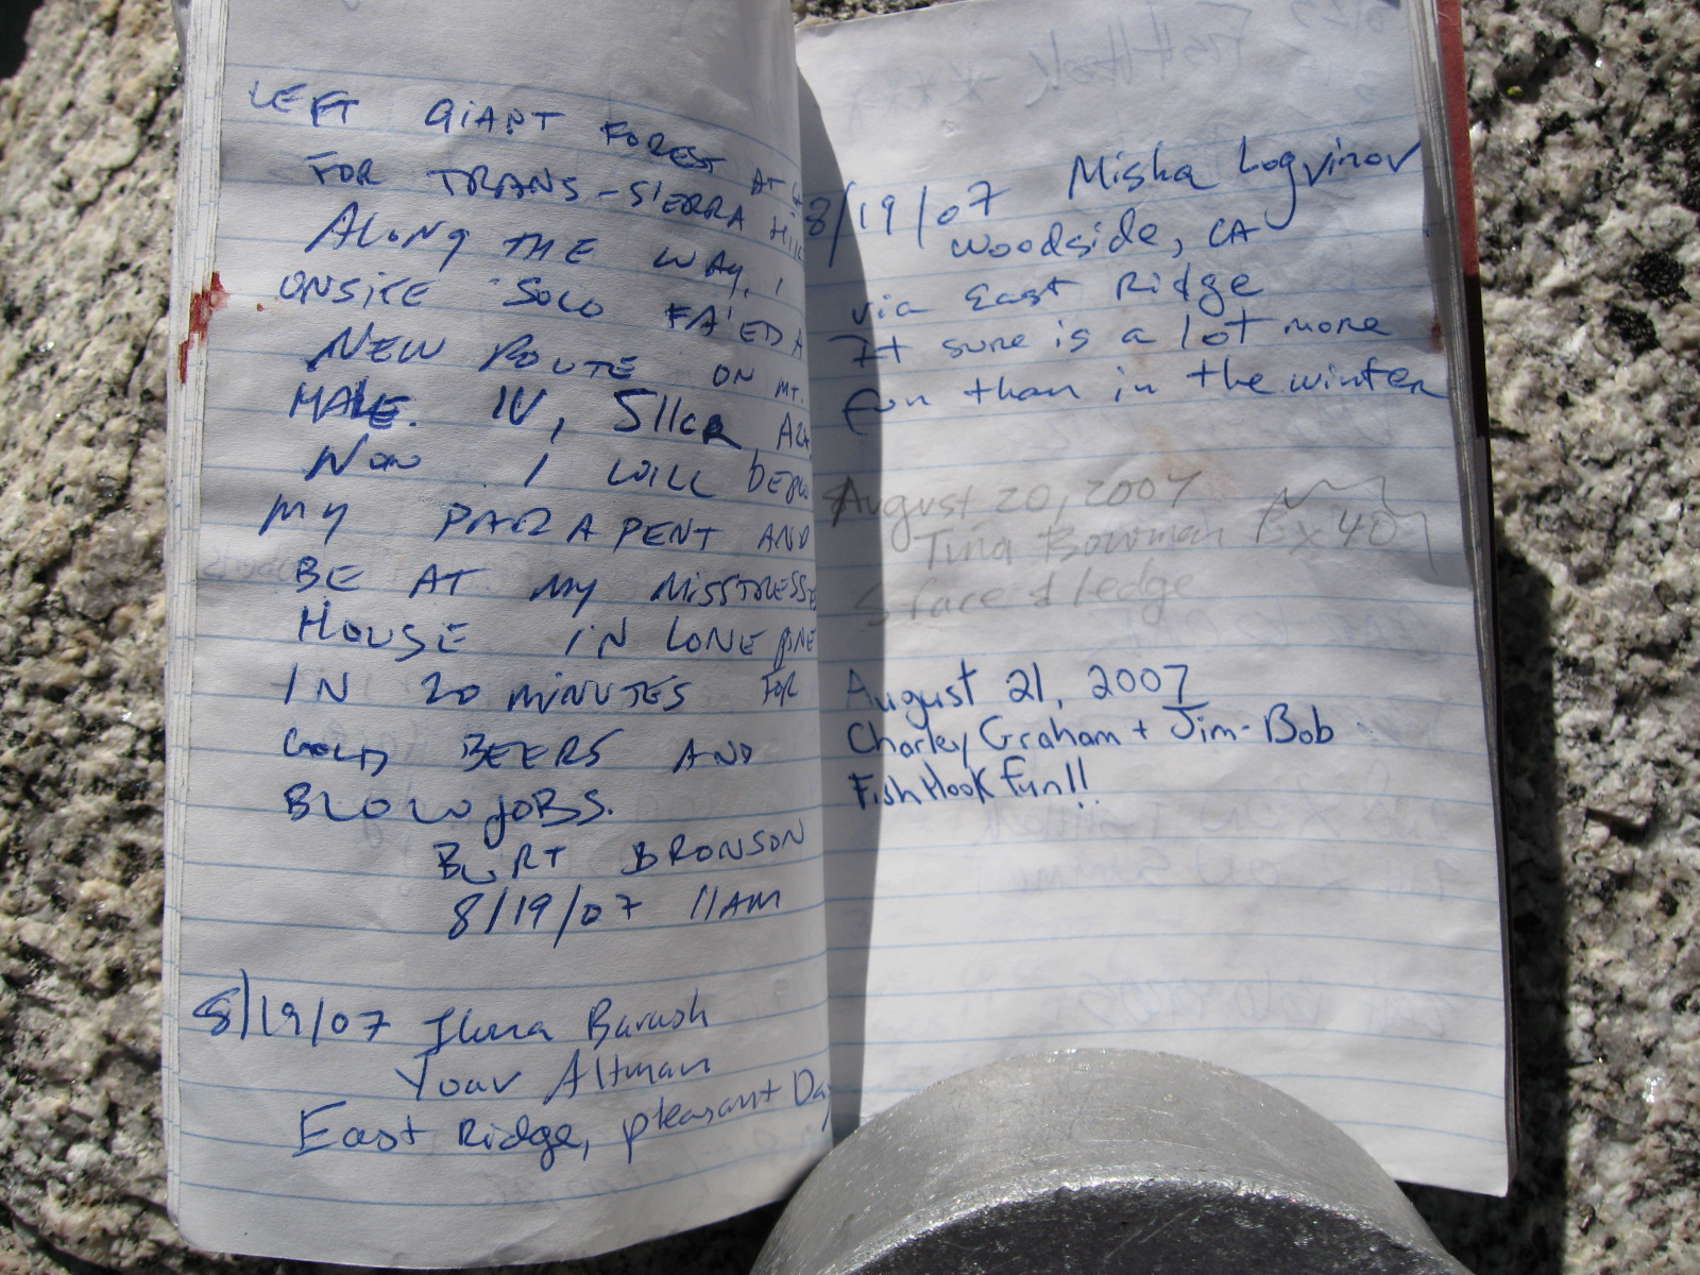 LEFT GIANT FOREST AT
FOR TRANS-SIERRA
ALONG THE WAY, I
ONSITE SOLO FA'ED A
NEW ROUTE ON MT.
HALE. IV,
NOW I WILL
MY PARAPENT AND
BE AT MY MISSTRESSES
HOUSE IN LONE PINE
IN 20 MINUTES FOR
COLD BEERS AND
BLOWJOBS.
BURT BRONSON
8/19/07 11AM
8/19/07 Ilana Barash
Yoav Altman
East Ridge, pleasant Day
8/19/07 Misha Logvinov
Woodside, CA
via East Ridge
It sure is a lot more
fun than in the winter
August 20, 2007
Tina Bowman x 40
S face & ledge
August 21, 2007
Charley Graham + Jim-Bob
Fish Hook Fun!!